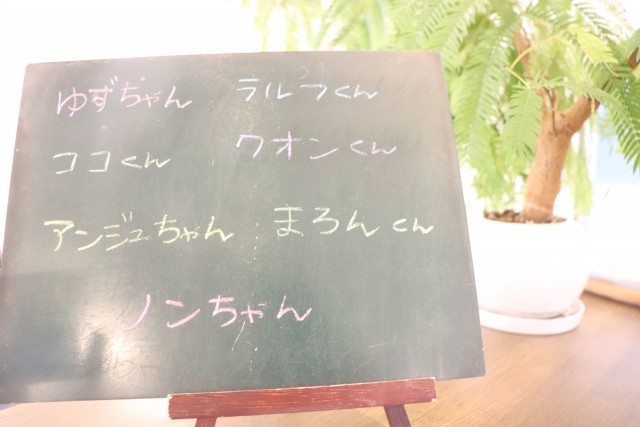 ゆずちゃん ラルフくん
ココくん クオンくん
アンジュちゃん まろんくん
ノンちゃん